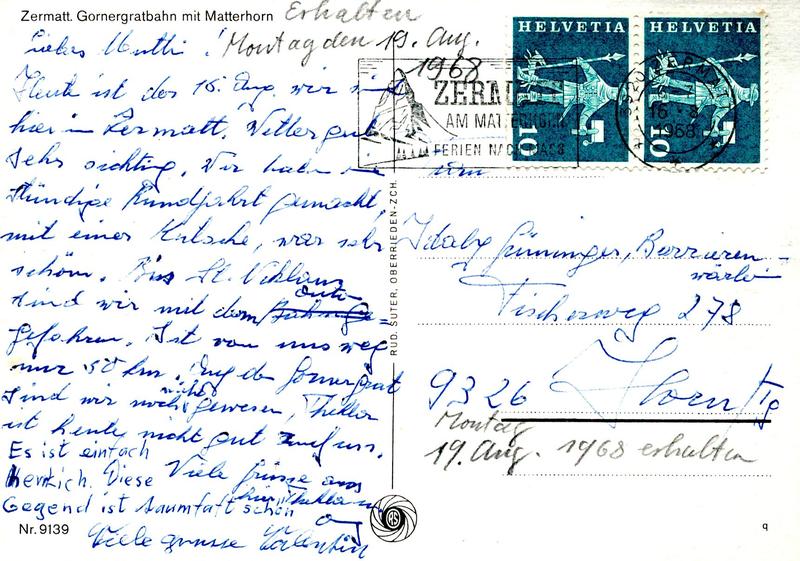 Zermatt. Gornergratbahn mit Matterhorn
Erhalten
Montag den 19. Aug.
1968
Liebes Mutti!
Heute ist der 16. Aug. wir sind
hier in Zermatt, Wetter gut
sehr sichtig. Wir haben eine
stündige Rundfahrt gemacht,
mit einer Kutsche, war sehr
schön. Bis St. Niklaus
sind wir mit dem Auto
gefahren. Ist von uns weg
nur 50 km. Auf dem Gornergrat
sind wir noch nicht gewesen,
ist heute nicht gut zu Fuss.
Viele Grüsse aus
Es ist einfach
Herrlich. Diese
Gegend ist traumhaft schön
Viele grüsse Valentin
Nr. 9139
RUD. SUTER, OBERRIEDEN-ZCH.
RS
HELVETIA
10
HELVETIA
10
ZERMATT
AM MATTERHORN
FERIEN NACH MASS
3920 ZERMATT
16.-8.
1968
Frau
Idaly Grüninger, Barrieren-
wärterin
Fischerweg 278
9326 Horn /Tg
Montag
19. Aug. 1968 erhalten
q